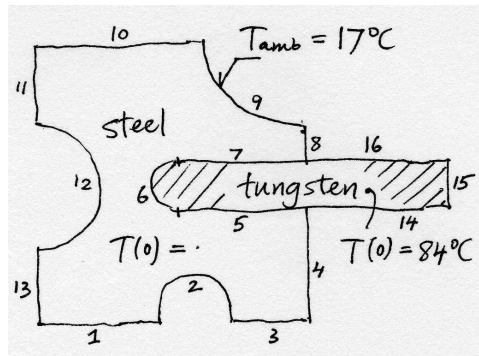 10
Tamb = 17°C
11
9
steel
8
7
16
12
6
tungsten
15
5
14
T(0) = .
T(0) = 84°C
13
2
4
1
3